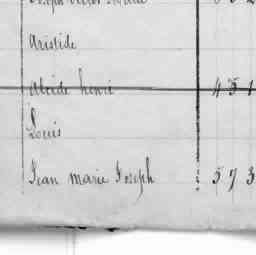 Aristide
Alcide henri 451
Louis
Jean marie Joseph 573